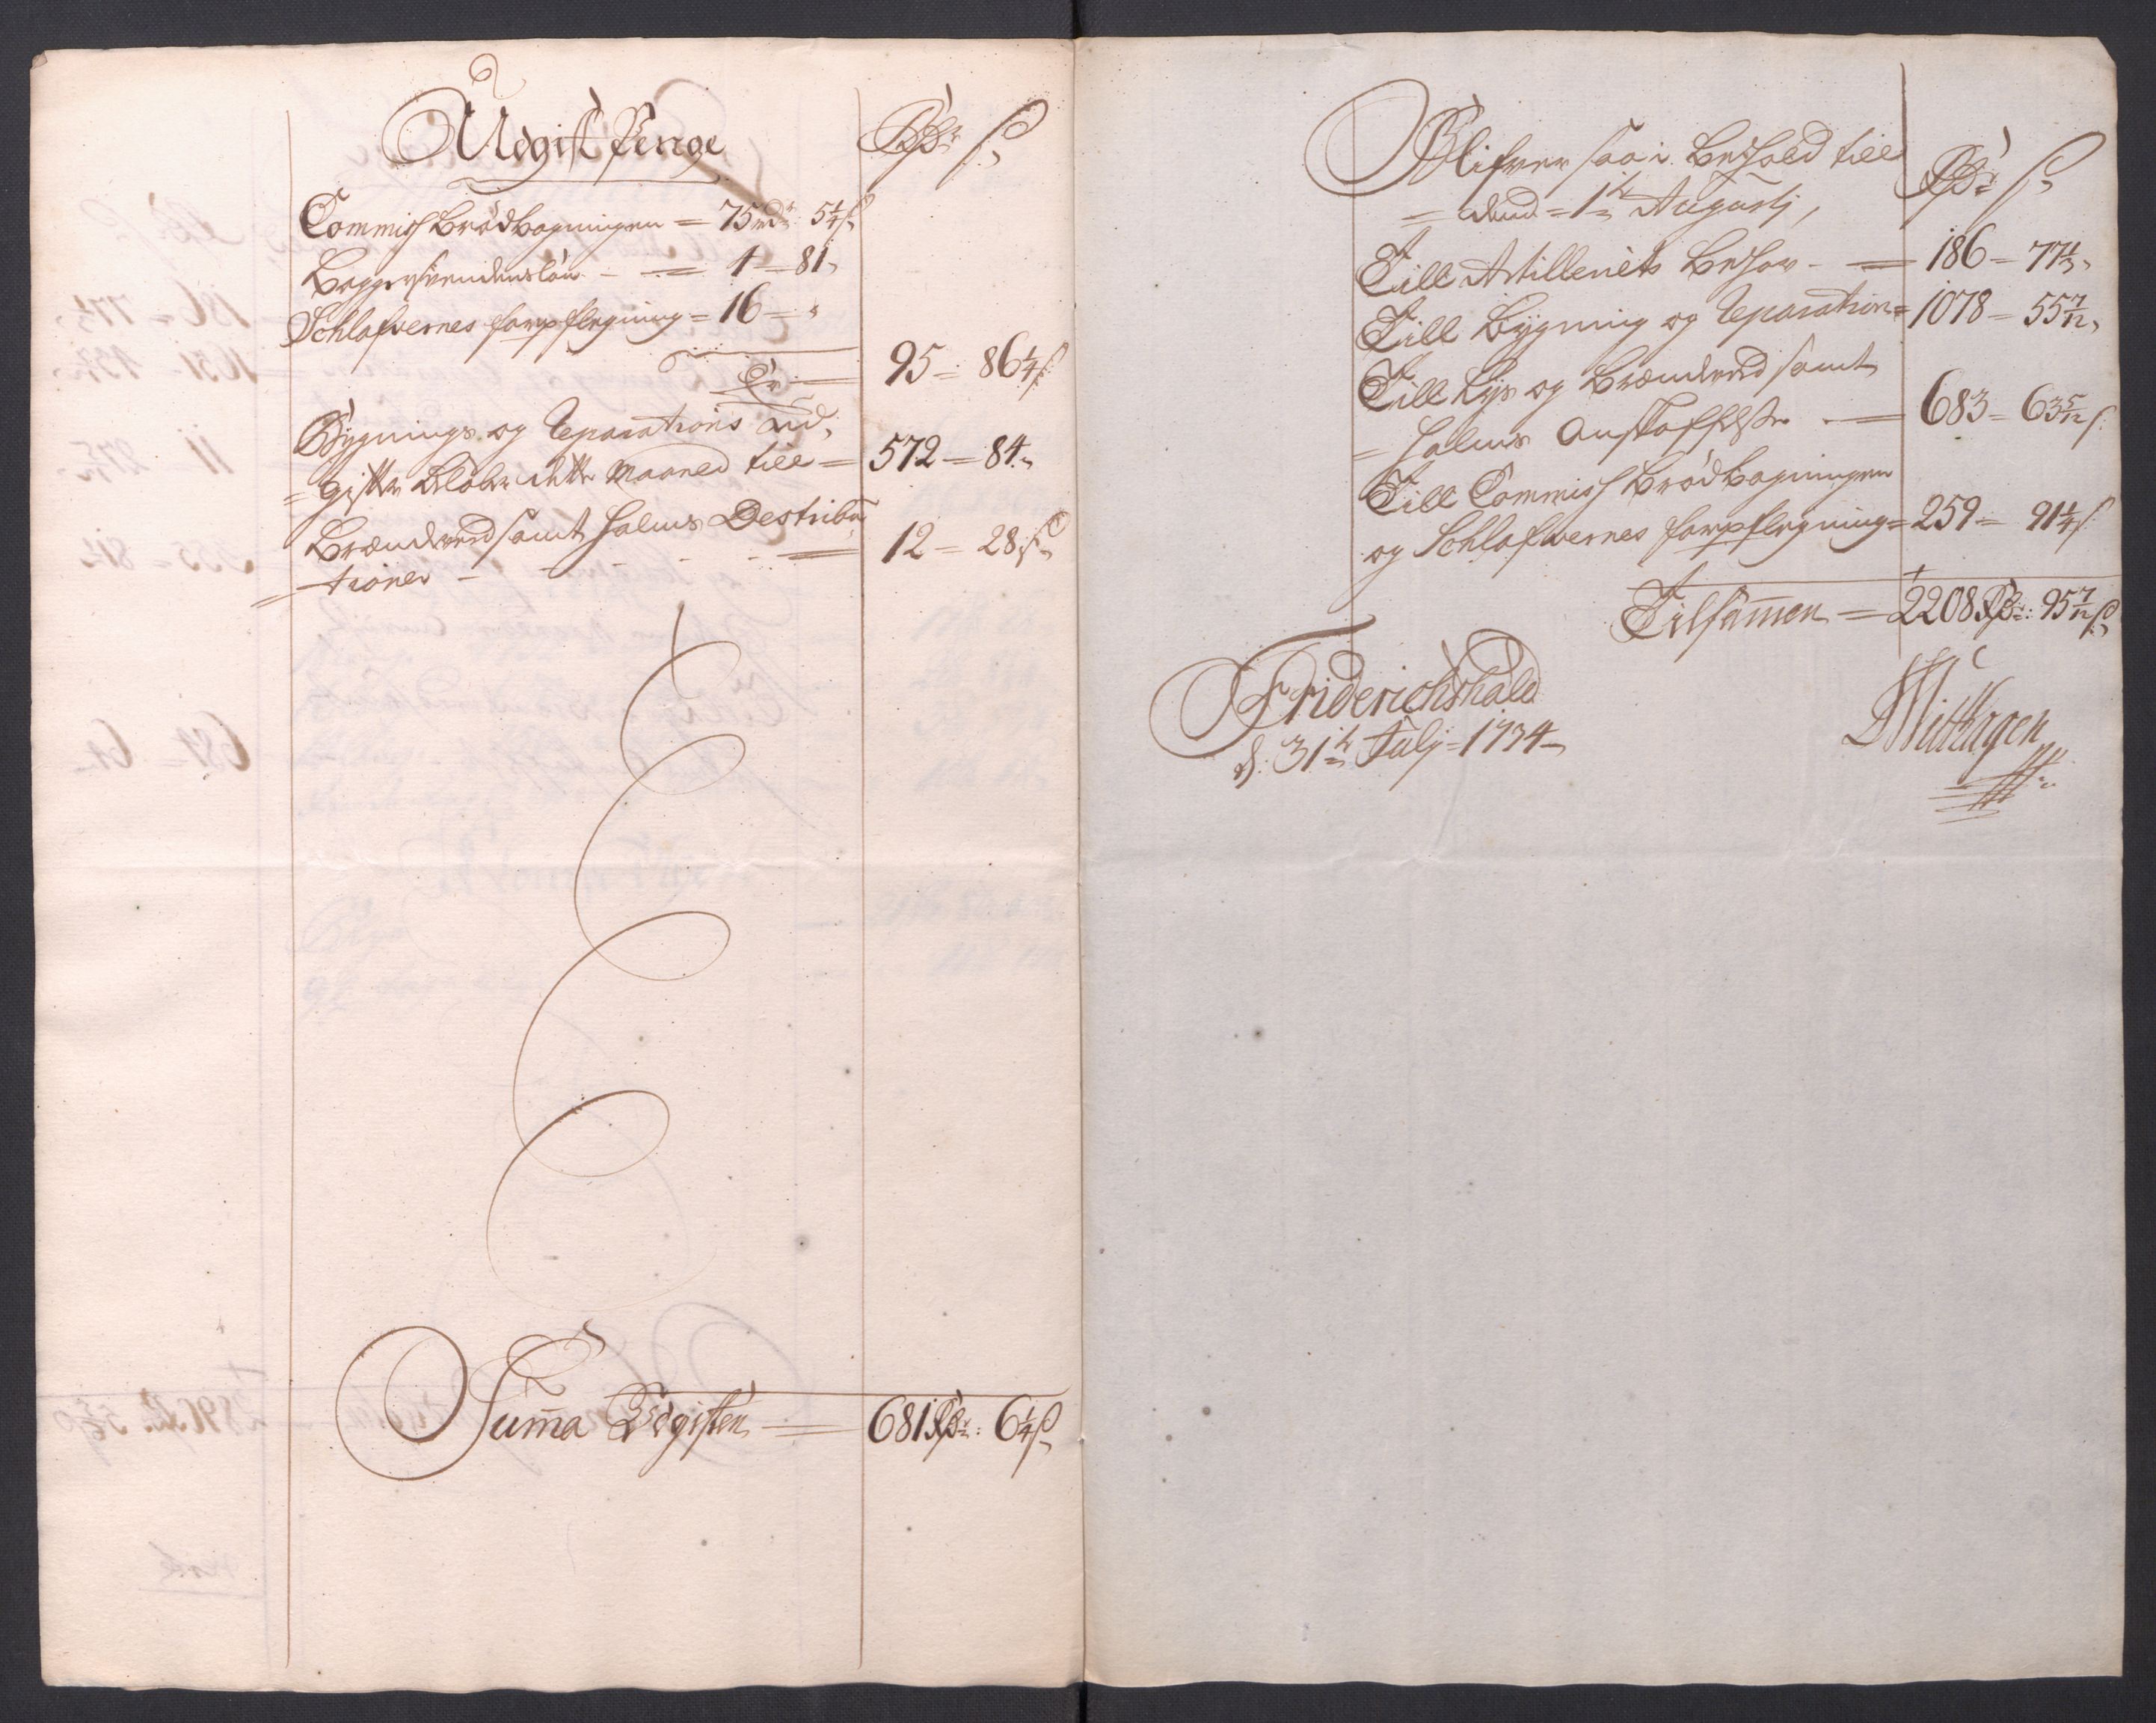 Udgift Penge Rdr ß
Commiss Brødbagningen = 75 rdr 5 1/4 ß
Bagersvendens løn - = 4 = 81
Schlafvernes forpflegning = 16 = "
Er = 95 = 86 1/4 ß
Bygnings og Reparations ud,
= gifter beløber dette Maaned till = 572 = 84
Brændeved samt halms Destribu
= tioner - - - - = 12 = 28 ß
Suma Udgiften = 681 Rdr: 6 1/4 ß
Blifver saa i behold till
= dend = 1te Augustj, Rdr ß
Till Artilleriets behov - = 186 = 77 1/3
Till Bygning og Reparation = 1078 = 55 7/12
Till Lys og Brændeved samt
= halms anskaffelse - = 683 = 63 5/12 ß
Till Commiss Brødbagningen
og Schlafvernes forpflegning = 259 = 91 1/4 ß
Tilsamen = 2208 Rdr: 95 7/12 ß
Friderichshald
d: 31te Julj = 1734